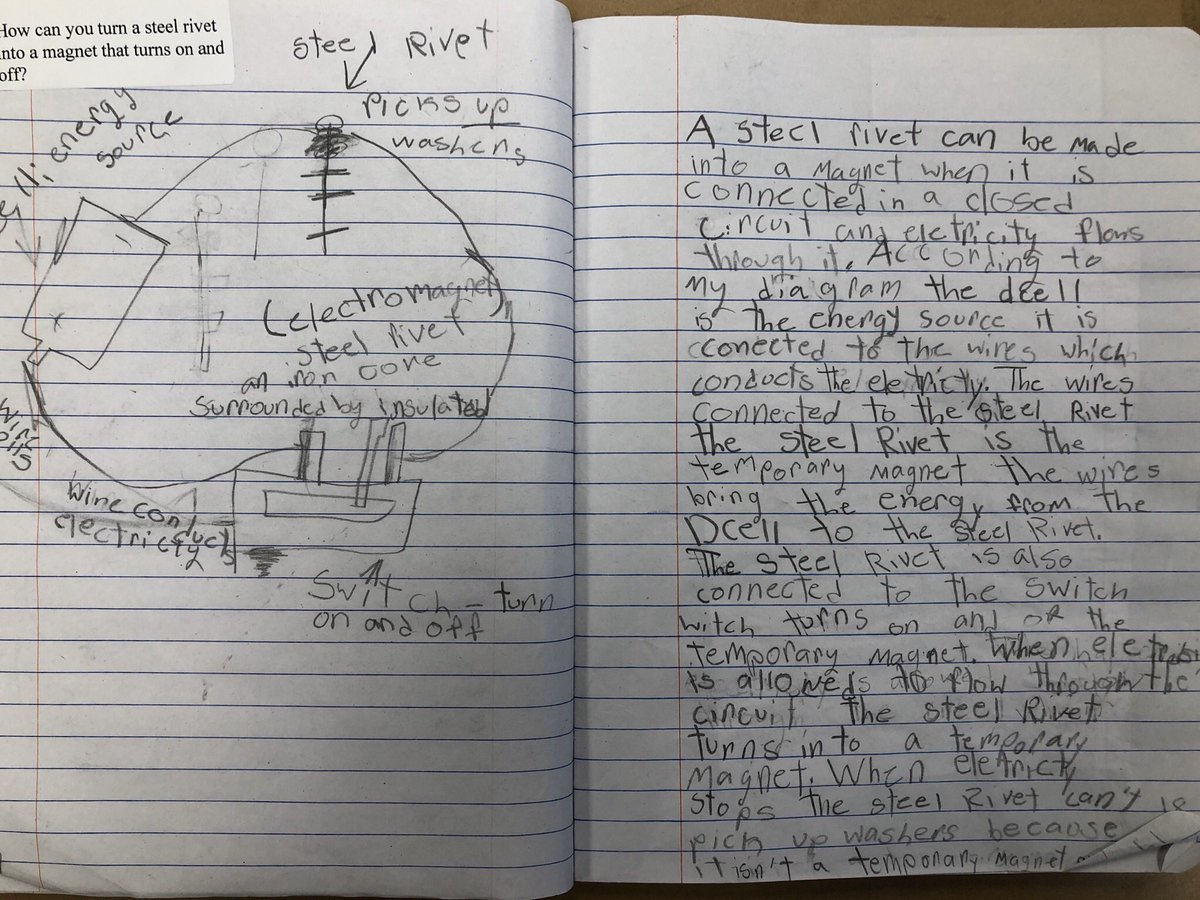 How can you turn a steel rivet
into a magnet that turns on and
off?
Steel Rivet
Picks up
washers
energy
source
(electromagnet)
steel rivet
an iron core
surrounded by insulated
Wire conducts
electricty
Switch - turn
on and off
A steel rivet can be made
into a magnet when it is
connected in a closed
circuit and eletricity flows
through it. According to
my diagram the dcell
is the energy source it is
conected to the wires which
conducts the eletricty. The wires
connected to the steel Rivet
the steel Rivet is the
temporary magnet the wires
bring the energy from the
Dcell to the steel Rivet.
The steel Rivet is also
connected to the switch
witch turns on and of the
temporary magnet. When
is alloweds to flow through the
circuit the steel Rivet
turns into a temporary
magnet. When eletricty
stops the steel Rivet can't
pick up washers because
it isn't a temporary magnet